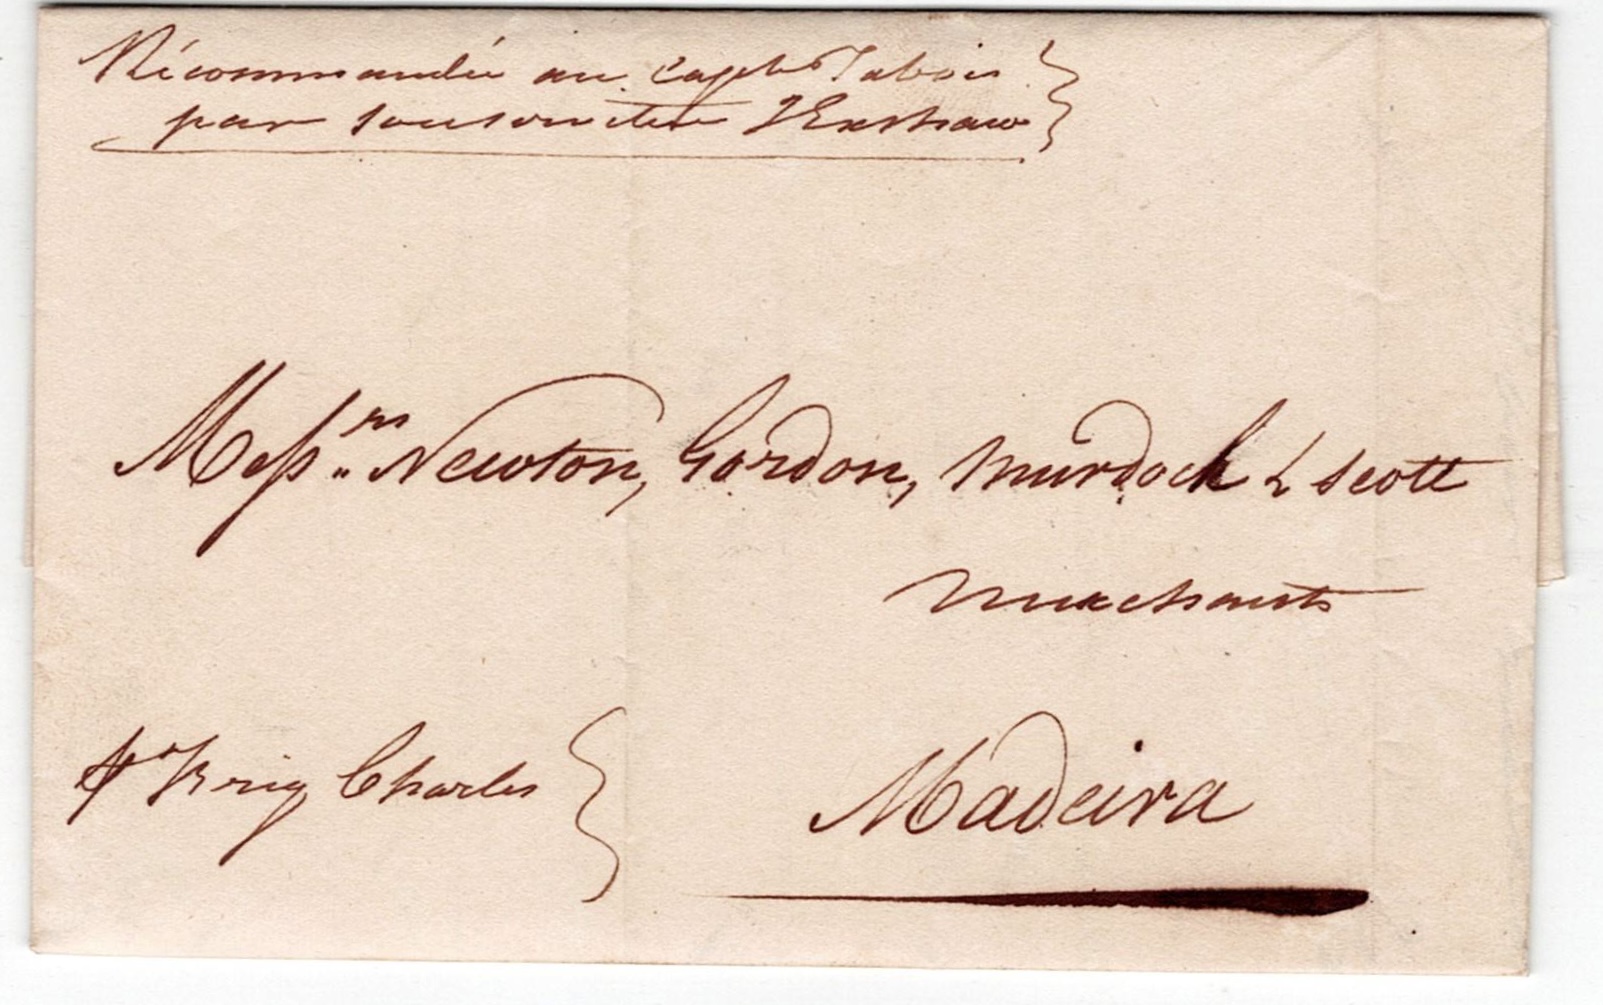 Récommandée au capt Tabois
par son serviteur J Exshaw
Messrs. Newton, Gordon, Murdock & Scott
Merchants
Madeira
pr Brig Charles